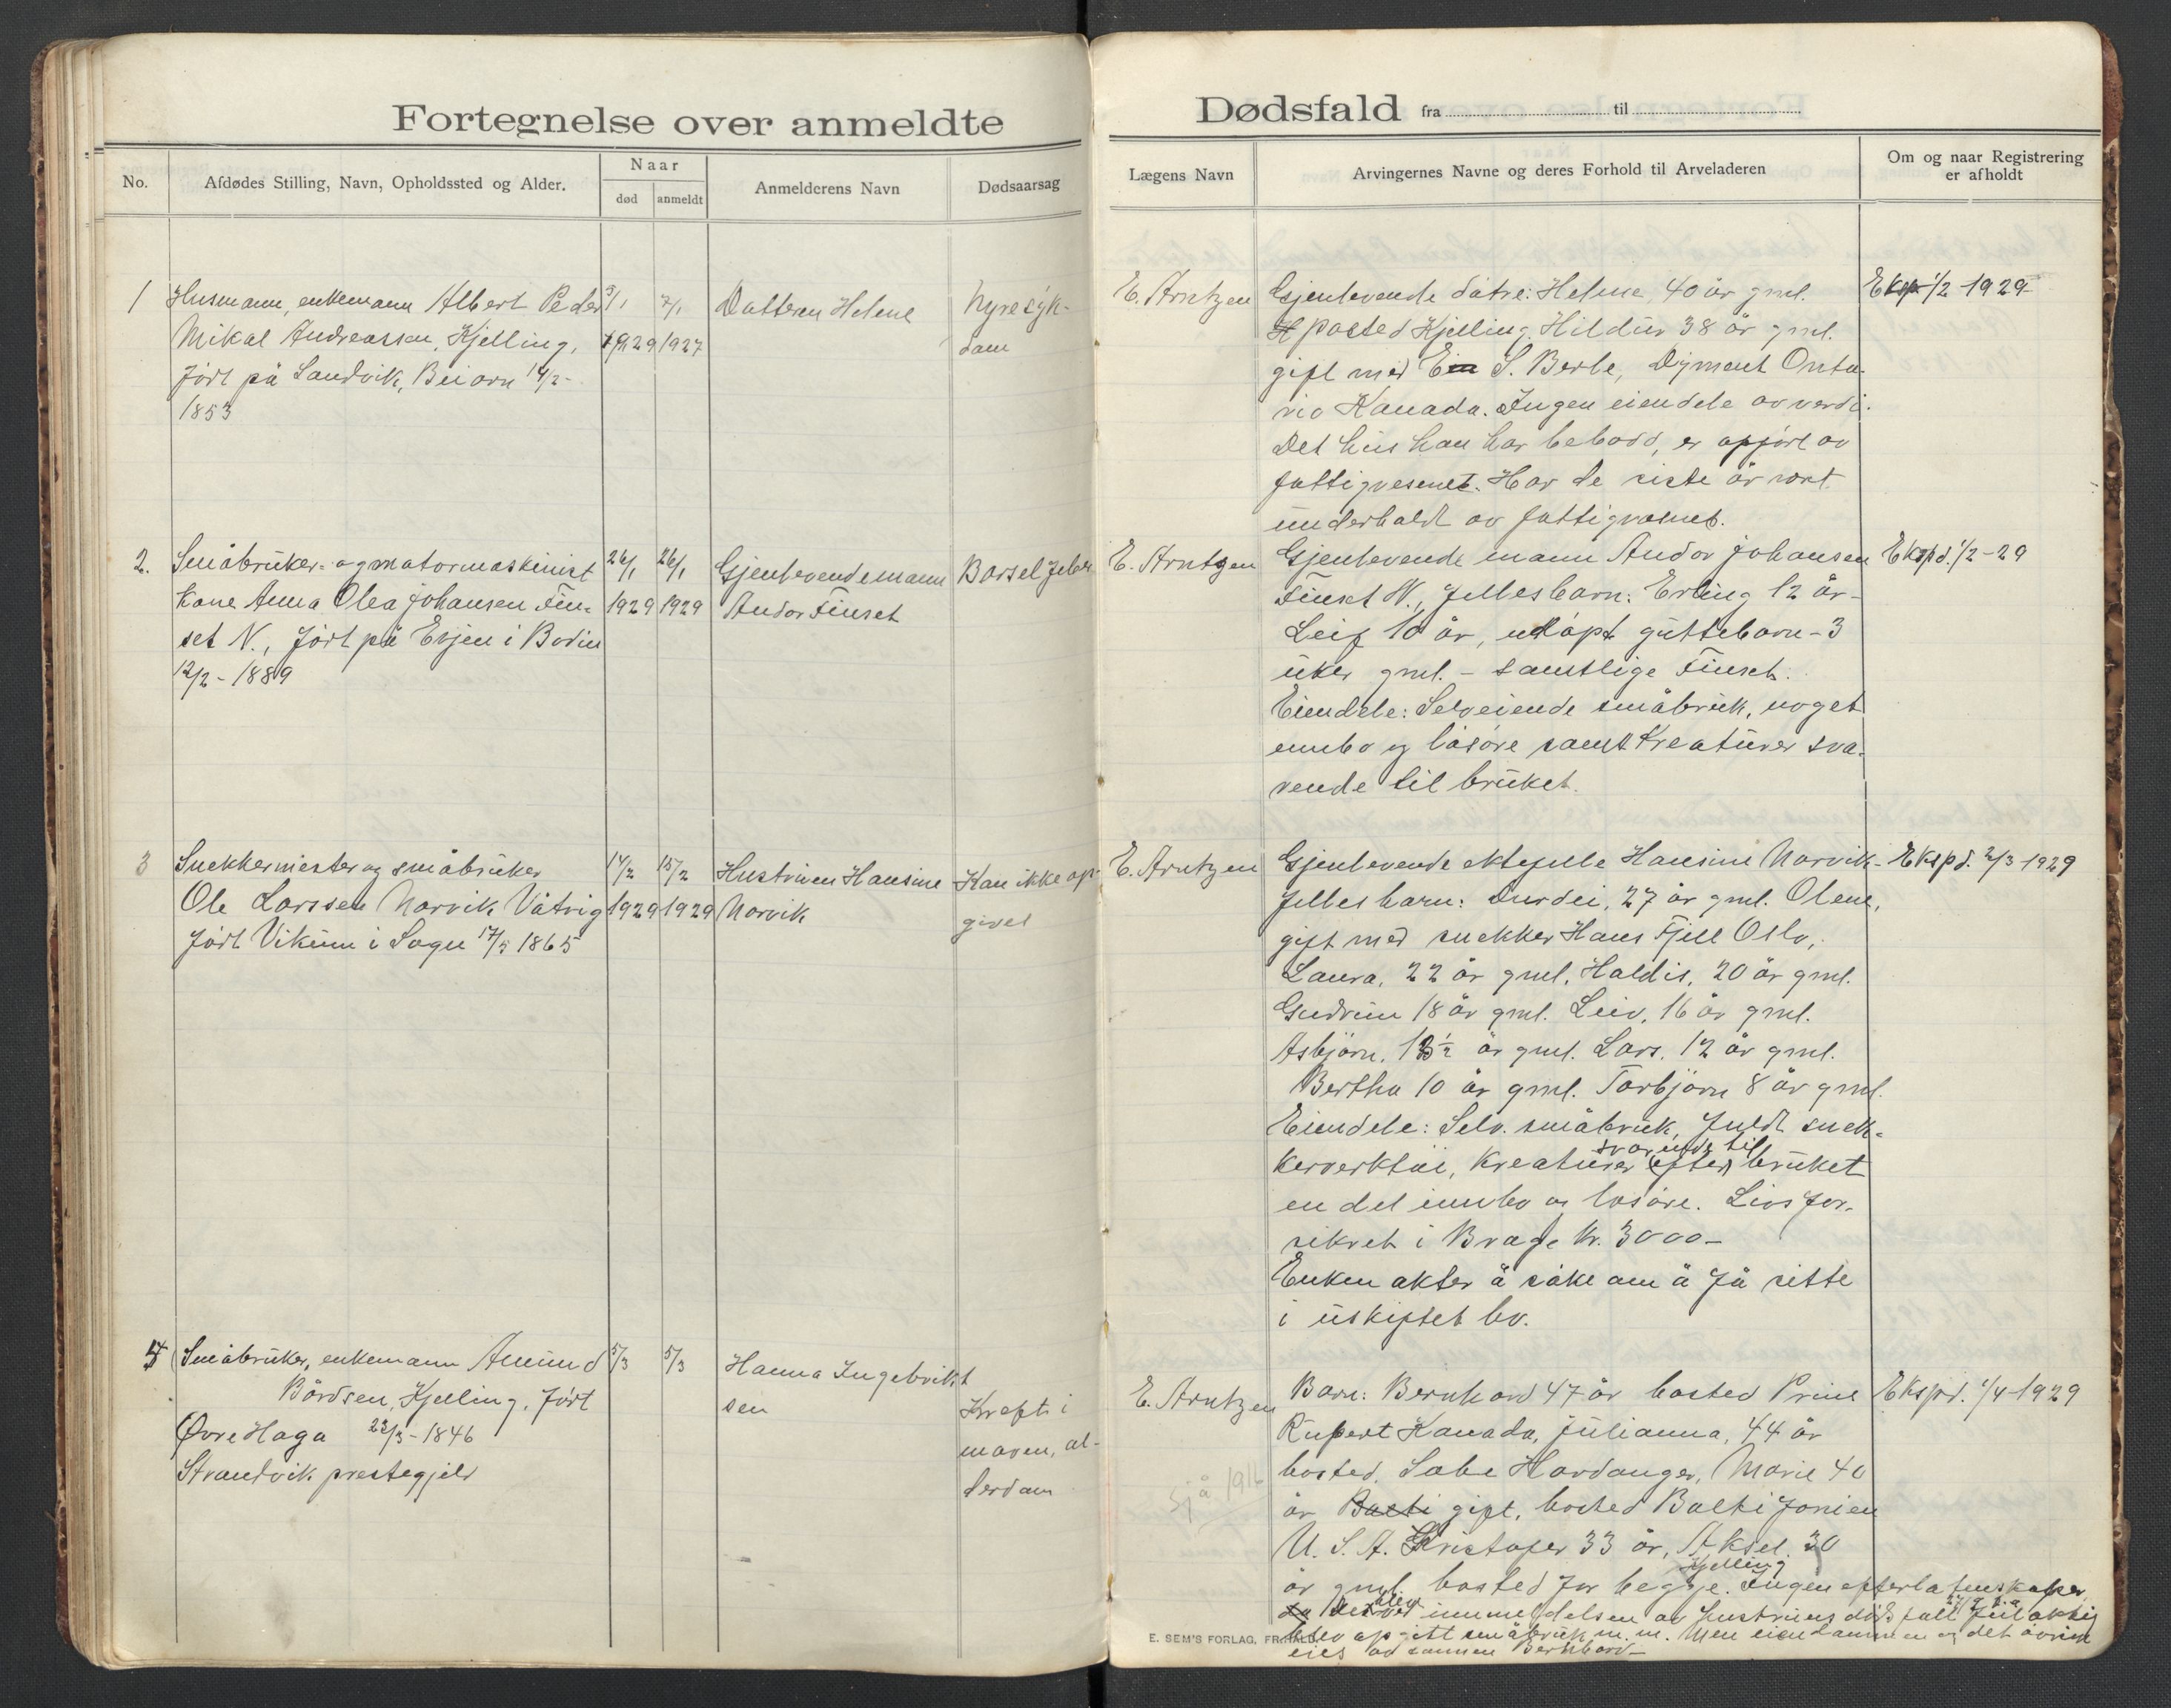 Fortegnelse over anmeldte
No.
Afdødes Stilling, Navn, Opholdssted og Alder.
Naar
død
anmeldt
Anmelderens Navn
Dødsaarsag
1 Husmann, enkemann Albert Peder 5/1 7/1 Datteren Helene Nyresyk-
Mikal Andreassen, Kjelling, 1929 1927 dom
født på Sandvik, Beiarn 14/2-
1853
2. Småbruker- og motormaskinist 26/1 26/1 Gjenlevende mann Barselfeber
kone Anna Olea Johansen Fin- 1929 1929 Andor Finset
set N., født på Evjen i Bodin
12/2 - 1889
3 Snekkermester og småbruker 14/2 15/2 Hustruen Hansine Kan ikke op-
Ole Larssen Norvik Våtvig 1929 1929 Norvik givel
født Vikum i Sogn 17/5 1865
4 Småbruker, enkemann Amund 5/3 5/3 Hanna Ingebrikt
Bårdsen, Kjelling, født sen Kreft i
Øvre Haga 23/3 - 1846 maven, al-
Strandvik prestegjeld derdom
Dødsfald fra til
Lægens Navn
Arvingernes Navne og deres Forhold til Arveladeren
Om og naar Registrering
er afholdt
E. Arntzen Gjenlevende døtre: Helene, 40 år gml. Eksp 1/2 1929
posted Kjelling, Hildur 38 år gml.
gift med S. Berle, Dyment Onta-
rio Kanada. Ingen eiendele av verdi.
Det hus han har bebodd, er opført av
fattigvesenet. Har de siste år vært
underholdt av fattigvesnet.
E. Arntzen Gjenlevende mann Andor Johansen Ekspd. 1/2 - 29
Finset N., Fellesbarn: Erling 12 år -
Leif 10 år, udøpt guttebarn - 3
uker gml. - samtlige Finset.
Eiendele: Selveiende småbruk, noget
innbo og løsøre samt kreaturer sva-
rende til bruket.
E. Arntzen Gjenlevende ektefelle Hansine Norvik - Ekspd. 2/3 1929
Fellesbarn: Durdei, 27 år gml. Olene,
gift med snekker Hans Fjell Oslo,
Laura, 22 år gml. Haldis, 20 år gml.
Gudrun 18 år gml. Leiv, 16 år gml.
Asbjørn, 13 1/2 år gml. Lars, 12 år gml.
Bertha 10 år gml. Torbjørn 8 år gml.
Eiendele: Selv. småbruk, fuldt snek-
svarende til
kerverktøi, kreaturer (efter) bruket
en del innbo og løsøre. Livsfor-
sikret i Brage kr. 3000 -
Enken akter å søke om å få sitte
i uskiftet bo.
E. Arntzen Barn: Bernhard 47 år bosted Prins Ekspd. 1/4 - 1929
Rupert Kanada, Julianna, 44 år
bosted. Hardanger, Marie 40
sjå 1916
år gift, bosted
U. S. A. Kristofer 33 år, Aksel 30
Kjelling
år gml. bosted for begge. Ingen efterlatenskaper
blev
da det ved innmeldelsen av hustruens dødsfall
blev opgitt småbruk m. m. Men eiendommen og det øvrige
eies av sønnen Bernhard -
E. SEM'S FORLAG, FR.HALD.